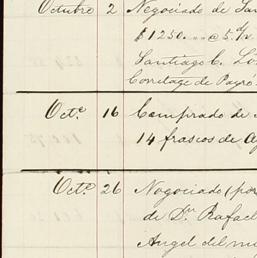 Octubre 2 Negociado de San
$1250.
Santiago C. Ló
Oct.e 16 Comprado de
14 frascos de
Oct.e 26 Negociado (por
de Dn Rafael
Angel del